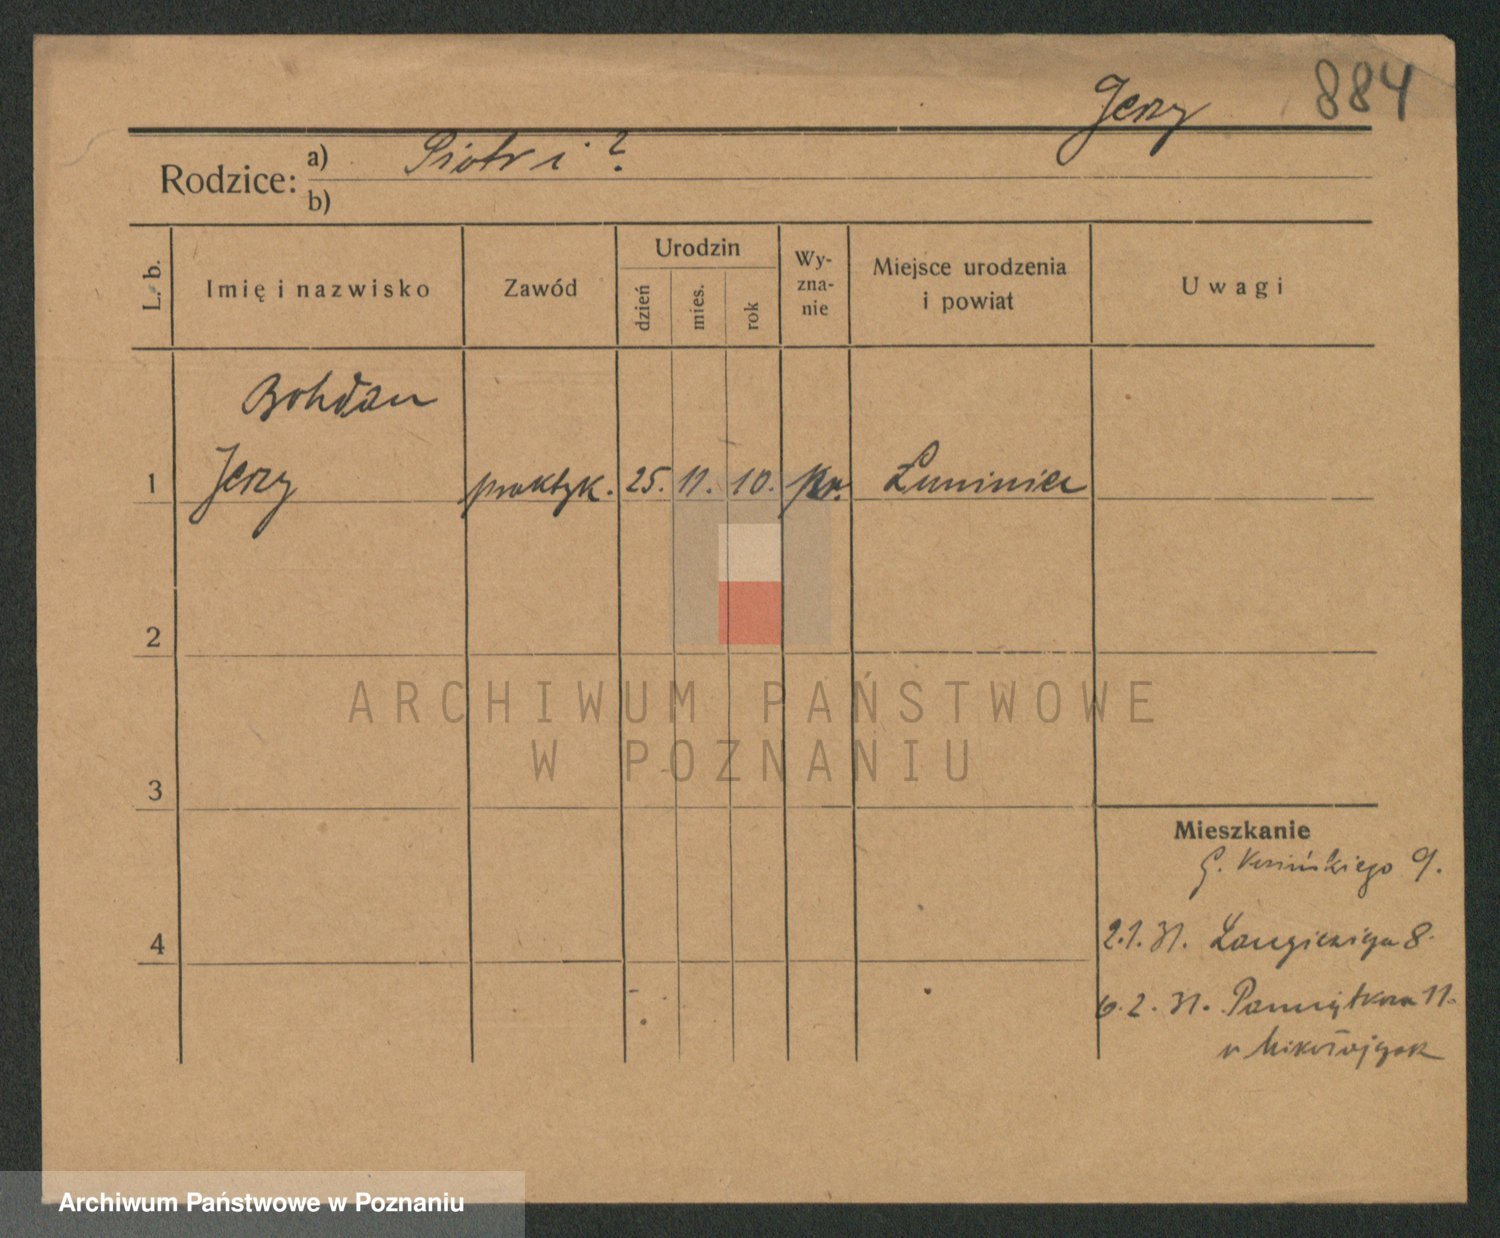 Jerzy 884
Rodzice: a) Piotr i ?
b)
L. b. Imię i nazwisko Zawód Urodzin dzień mies. rok Wy-zna-nie Miejsce urodzenia i powiat Uwagi
Bohdan
1 Jerzy praktyk. 25. 11. 10. pr. Luniniec
2
3
4
Mieszkanie
9.
2.1.31. Langiewicza 8.
6.2.31. Pamiątkowa 11.
u Mikołajczak
ARCHIWUM PAŃSTWOWE
W POZNANIU
Archiwum Państwowe w Poznaniu